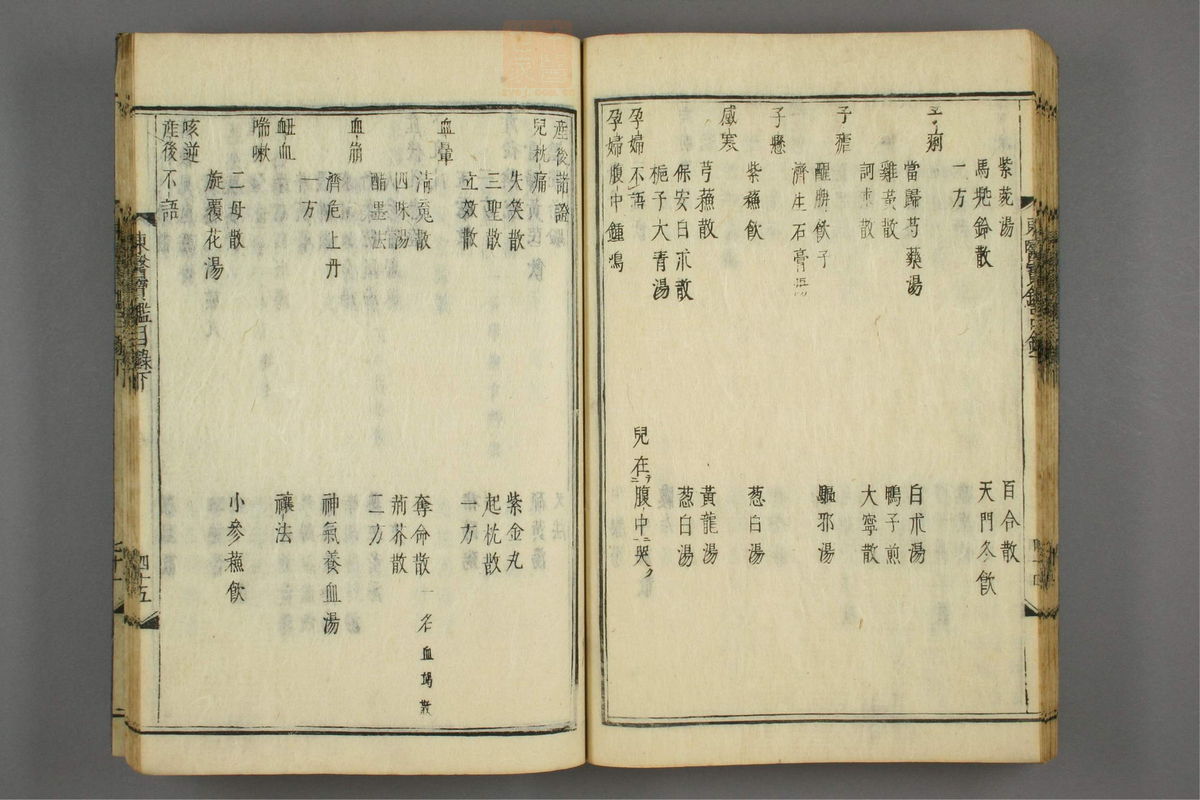 紫菀湯 百合散
馬兠鈴散 天門冬飮
一方
子痢
當歸芍藥湯 白朮湯
雞黃散 鴨子煎
訶朮散 大寧散
子瘧
醒脾飮子 驅邪湯
濟生石膏湯
子懸
紫蘇飮 葱白湯
感寒
芎蘇散 黃龍湯
保安白朮散 葱白湯
梔子大靑湯
孕婦不語 兒在腹中哭
孕婦腹中鍾鳴
產後諸證
兒枕痛
失笑散 紫金丸
三聖散 起枕散
立效散 一方
血暈
淸魂散 奪命散 一名血竭散
四味湯 荊芥散
醋墨法 二方
血崩
濟危上丹 神氣養血湯
一方
衄血 禳法
喘嗽
二母散 小參蘇飮
旋覆花湯
咳逆
產後不語
東醫寶鑑目錄下
四十五